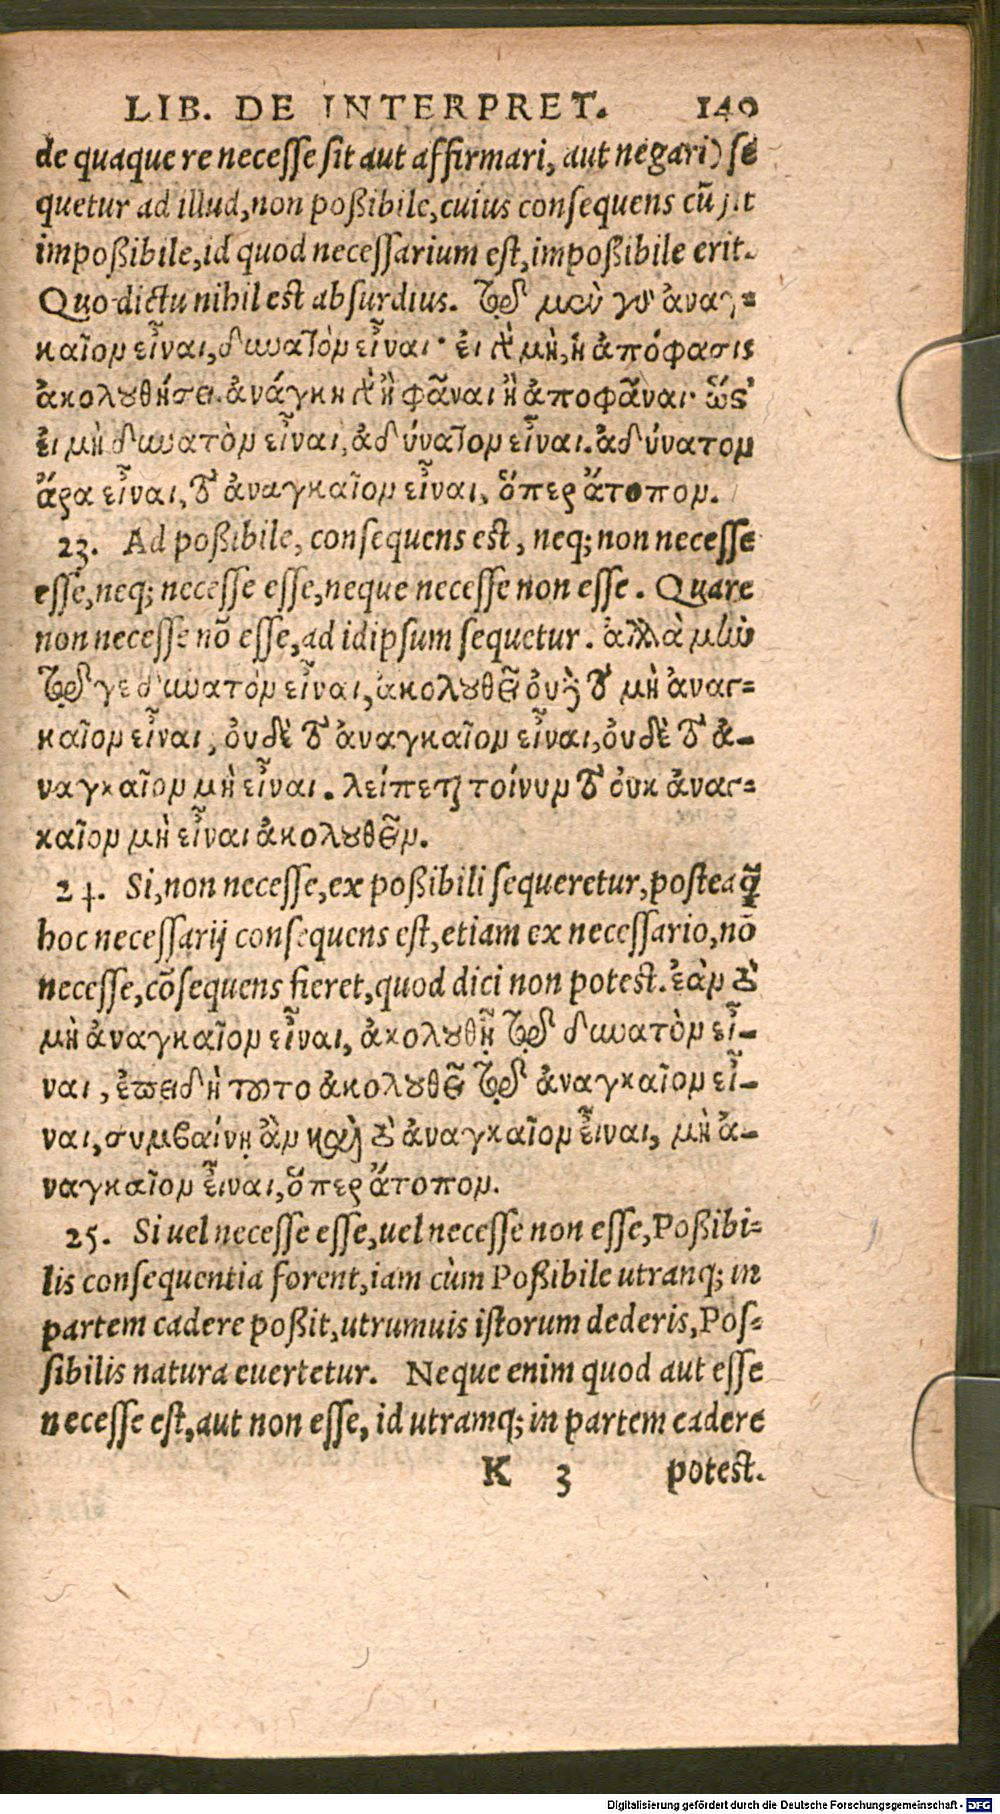 LIB. DE INTERPRET. 140
de quaque re necesse sit aut affirmari, aut negari) se
quetur ad illud, non poßibile, cuius consequens cũ sit
impoßibile, id quod necessarium est, impoßibile erit.
Quo dictu nihil est absurdius. τῷ μὲν γὸ ἀναγ-
καῖον εἶναι, δυνατὸν εἶναι· εἰ δὲ μὴ, ἡ ἀπόφασις
ἀκολουθήσει. ἀνάγκη δὲ ἢ φᾶναι ἢ ἀποφᾶναι· ὥστ'
εἰ μὴ δυνατὸν εἶναι, ἀδύνατον εἶναι. ἀδύνατον
ἄρα εἶναι, τὸ ἀναγκαῖον εἶναι, ὅπερ ἄτοπον.
23. Ad poßibile, consequens est, neq; non necesse
esse, neq; necesse esse, neque necesse non esse. Quare
non necesse nõ esse, ad id ipsum sequetur. ἀλλὰ μὴν
τῷ γε δυνατὸν εἶναι, ἀκολουθεῖ οὔτε τὸ μὴ ἀναγ-
καῖον εἶναι, οὐδὲ τὸ ἀναγκαῖον εἶναι, οὐδὲ τὸ ἀ-
ναγκαῖον μὴ εἶναι. λείπεται τοίνυν τὸ οὐκ ἀναγ-
καῖον μὴ εἶναι ἀκολουθεῖν.
24. Si, non necesse, ex poßibili sequeretur, postea q̃
hoc necessarij consequens est, etiam ex necessario, nõ
necesse, cõsequens fieret, quod dici non potest. ἐὰν τὸ
μὴ ἀναγκαῖον εἶναι, ἀκολουθῇ τῷ δυνατὸν εἶ-
ναι, ἐπειδὴ τοῦτο ἀκολουθεῖ τῷ ἀναγκαῖον εἶ-
ναι, συμβαίνῃ ἂν καὶ τὸ ἀναγκαῖον εἶναι, μὴ ἀ-
ναγκαῖον εἶναι, ὅπερ ἄτοπον.
25. Si uel necesse esse, uel necesse non esse, Poßibi-
lis consequentia forent, iam cùm Poßibile utranq; in
partem cadere poßit, utrumuis istorum dederis, Pos-
sibilis natura euertetur. Neque enim quod aut esse
necesse est, aut non esse, id utramq; in partem cadere
K 3 potest.
Digitalisierung gefördert durch die Deutsche Forschungsgemeinschaft - DFG